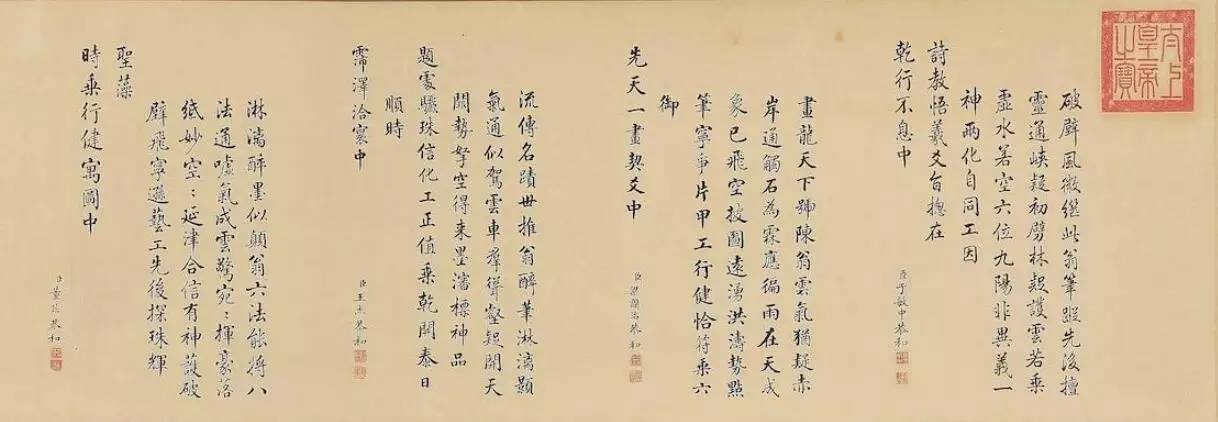 太上
皇帝
之寶
破壁風微繼此翁筆蹤先後擅
靈通峽疑初劈林疑護雲若乘
虛水若空六位九陽非異義一
神兩化自同工因
詩教悟羲爻旨揔在
乾行不息中
臣于敏中恭和
畫龍天下號陳翁雲氣猶疑赤
岸通觸石為霖應徧雨在天成
象已飛空披圖遠湧洪濤勢點
筆寧爭片甲工行健恰符乘六
御
先天一畫契爻中
臣梁國治恭和
流傳名蹟世推翁醉筆淋漓顥
氣通似駕雲車羣聳壑疑開天
闕勢拏空得來墨瀋標神品
題處驪珠信化工正值乘乾開泰日
順時
霈澤洽寰中
臣王杰恭和
淋漓醉墨似顛翁六法能將八
法通噓氣成雲驚宛:揮豪落
紙妙空:延津合信有神護破
壁飛寧遜藝工先後探珠輝
聖藻
時乘行健寓圖中
臣董誥恭和